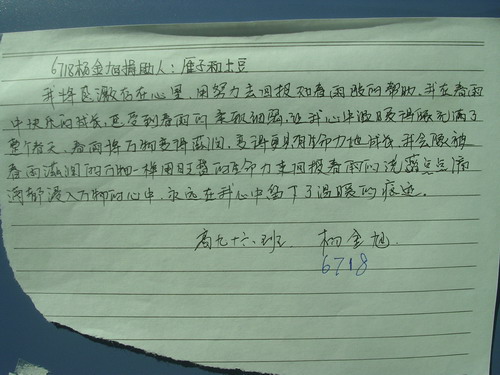 6718杨金旭捐助人：雁子和土豆
我将感激存在心里，用努力去回报如春雨般的帮助，我在春雨
中快乐的成长，感受到春雨的柔软细腻，让我心中波
整个春天，春雨将万物变得滋润，变得更具有生命力地成长，我会像被
春雨滋润的万物一样用旺盛的生命力来回报春雨的浇灌点点滴
滴都渗入万物的心中，永远在我心中留下了温暖的痕迹。
高九十六班 杨金旭
6718